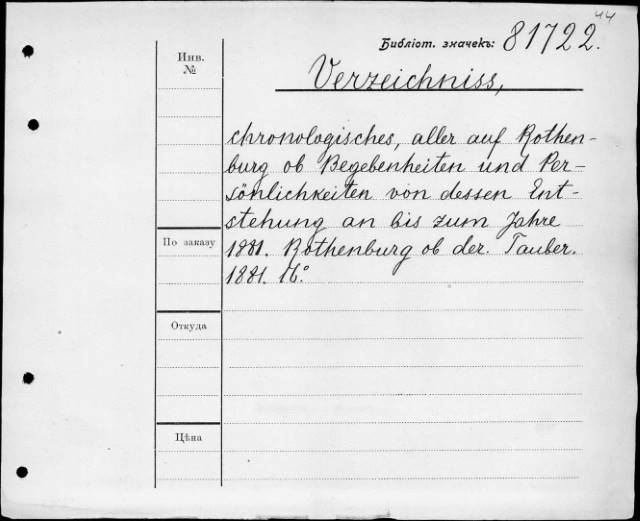 44
Библіот. значекъ: 81722.
Инв.
№
Verzeichniss,
chronologisches, aller auf Rothen-
burg ob Begebenheiten und Per-
sönlichkeiten von dessen Ent-
stehung an bis zum Jahre
По заказу
1881. Rothenburg ob der. Tauber.
1881. 16°.
Откуда
Цѣна